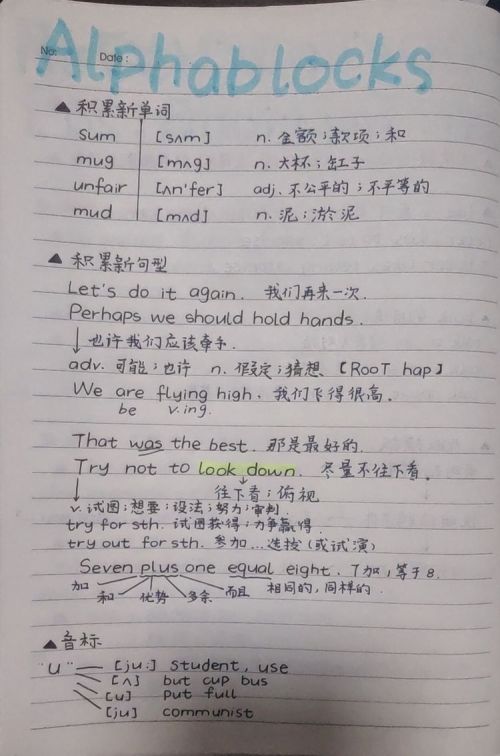 No:
Date:
Alphablocks
▲ 积累新单词
sum [sʌm] n. 金额；款项；和
mug [mʌg] n. 大杯；缸子
unfair [ʌn'fer] adj. 不公平的；不平等的
mud [mʌd] n. 泥；淤泥
▲ 积累新句型
Let's do it again. 我们再来一次.
Perhaps we should hold hands.
↓也许我们应该牵手.
adv. 可能；也许 n. 假定；猜想 【RooT hap】
We are flying high. 我们飞得很高.
be v.ing.
That was the best. 那是最好的.
Try not to look down. 尽量不往下看.
往下看；俯视
v. 试图；想要；设法；努力；审判.
try for sth. 试图获得；力争赢得.
try out for sth. 参加...选拔（或试演）
Seven plus one equal eight. 7加1等于8.
加 和 优势 多余 而且 相同的，同样的.
▲音标
"u" [ju:] student, use
[ʌ] but cup bus
[u] put full
[ju] communist